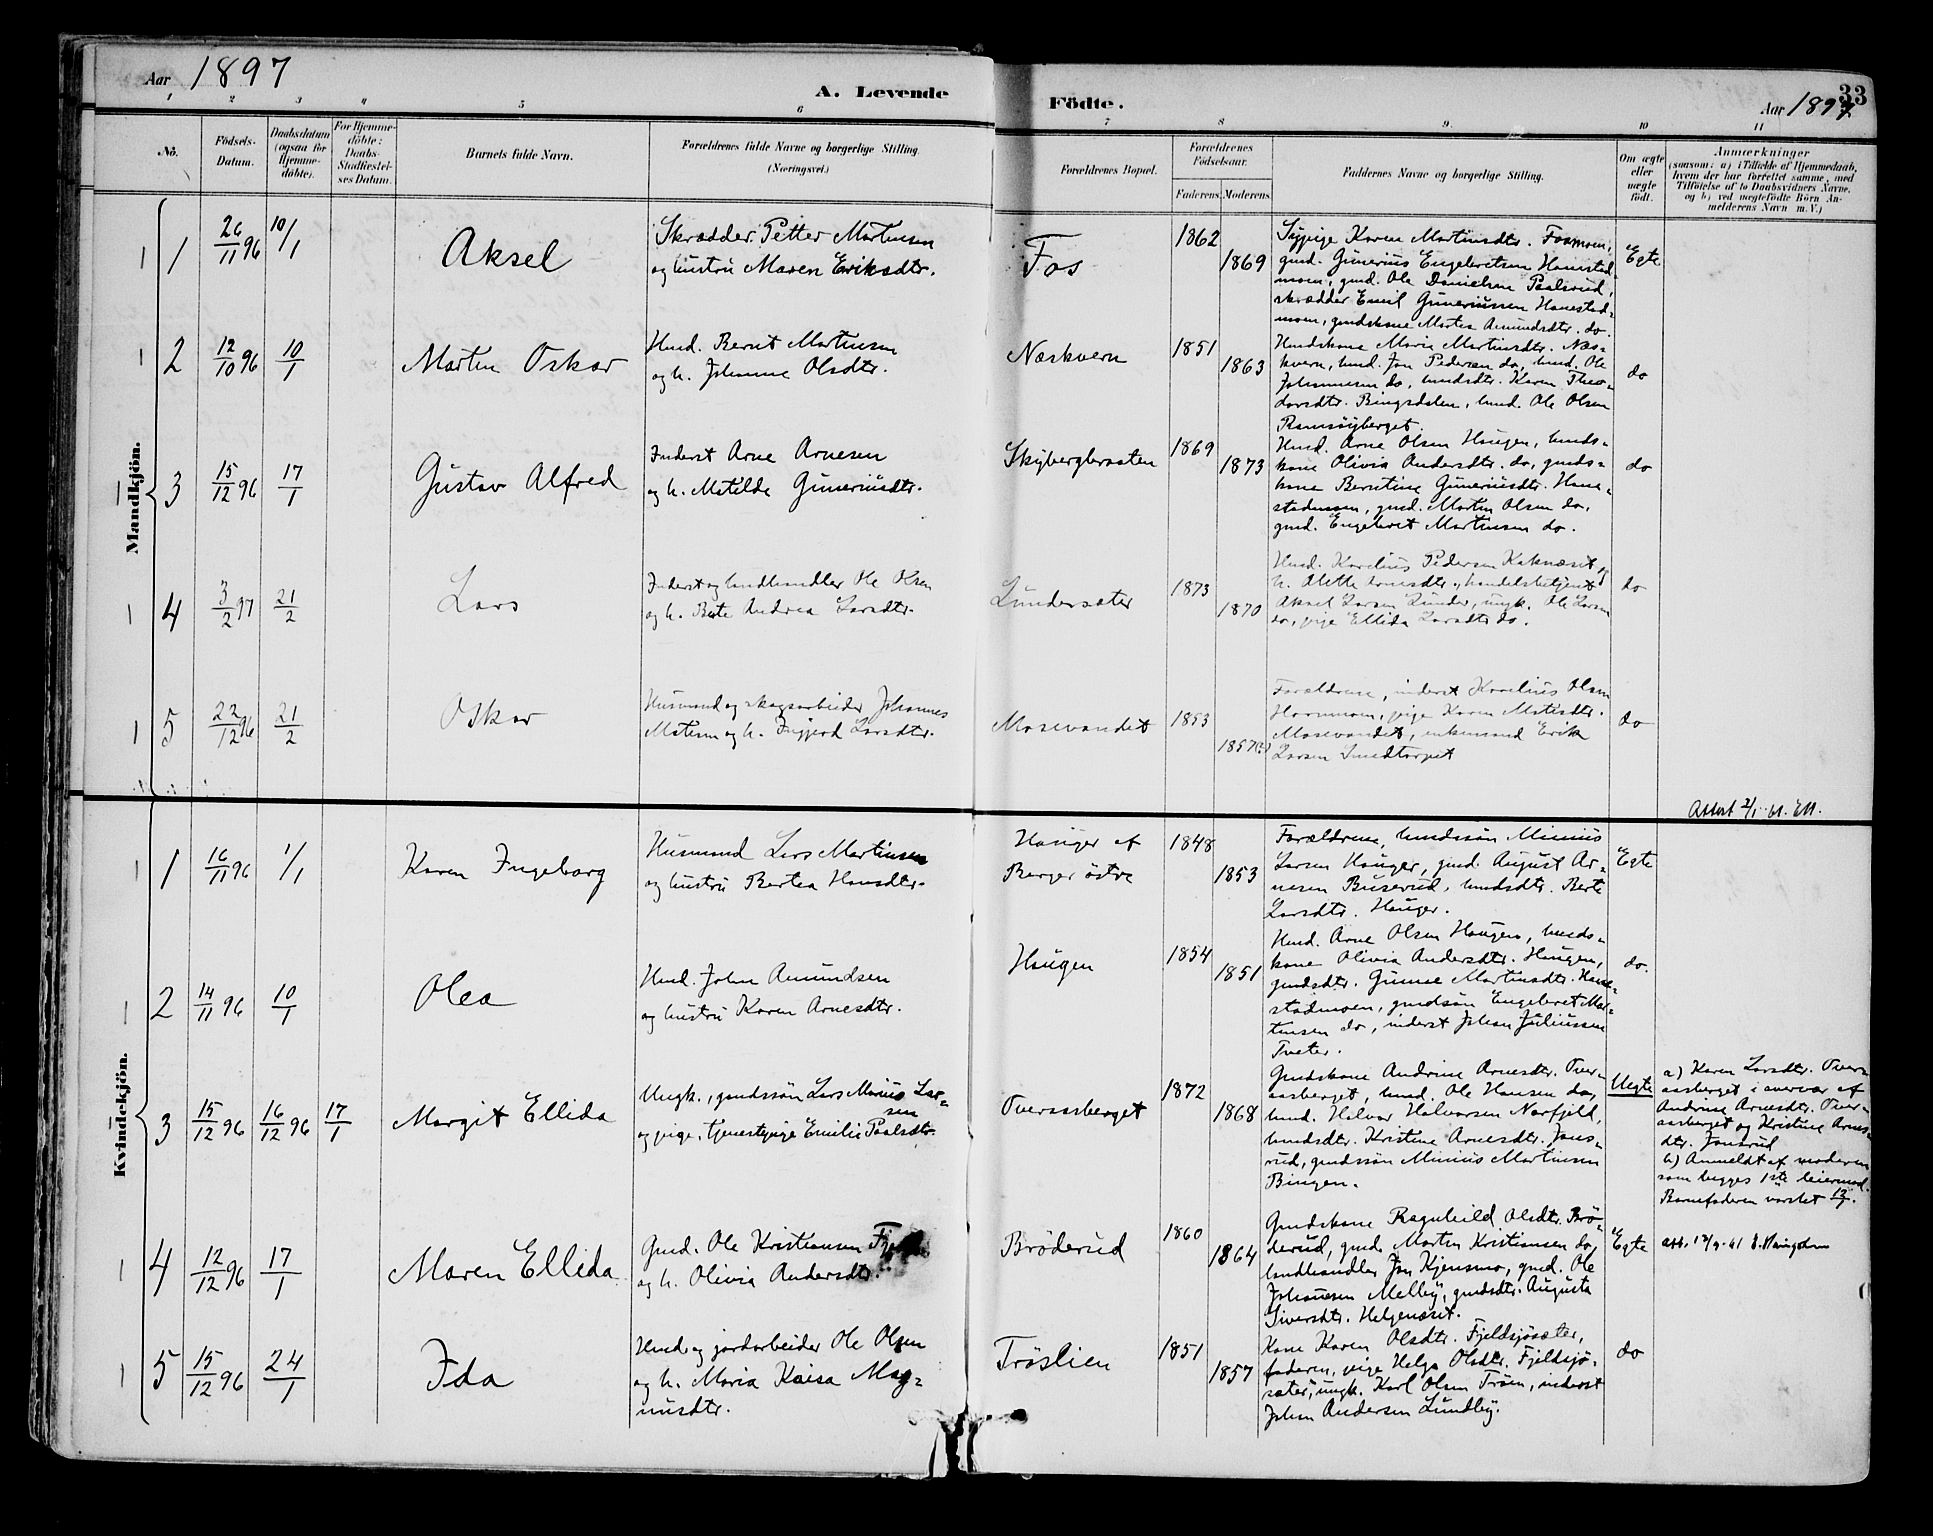 Aar 1897
A. Levende
Födte.
33
Aar 1897
1 2 3 4 5 6 7 8 9. 10 11
No.
Födsels-
Datum.
Daabsdatum
(ogsaa for
Hjemme-
döbte).
For Hjemme-
döbte:
Daabs-
Stadfæstel-
ses Datum.
Barnets fulde Navn.
Forældrenes fulde Navne og borgerlige Stilling.
(Næringsvei.)
Forældrenes Bopæl.
Forældrenes
Födselsaar.
Faderens. Moderens.
Faddernes Navne og borgerlige Stilling.
Om ægte
eller
uægte
födt.
Anmærkninger
(saasom: a) i Tilfælde af Hjemmedaab,
hvem der har forrettet samme, med
Tilföielse af to Daabsvidners Navne,
og b) ved uægtefödte Börn An-
melderens Navn m. V.)
Mandkjön.
1 1 26/11 96 10/1
Aksel
Skrædder Petter Martinsen
og hustru Maren Eriksdtr.
Fos
1862
1869
Sypige Karen Martinsdtr. Fosmoen,
gmd. Gunerius Engebretsen Hanestad-
moen, gmd. Ole Danielsen Paalsrud,
skrædder Emil Guneriussen Hanestad-
moen, gmdskone Martea Amundsdtr. do.
Egte
1 2 12/10 96 10/1
Marten Oskar
Hmd. Bernt Martinsen
og h. Johanne Olsdtr.
Næskvern
1851
1863
Hmdskone Maria Martinsdtr. Næs-
kvern, hmd. Jon Pedersen do, hmd. Ole
Johannesen do, hmdsdtr. Karen Theo-
dorsdtr. Bingsdalen, hmd. Ole Olsen
Ramsöyberget.
do
1 3 15/12 96 17/1
Gustav Alfred
Inderst Arne Arnesen
og h. Matilde Guneriusdtr.
Skybergbraaten
1869
1873
Hmd. Arne Olsen Haugen, hmds-
kone Olivia Andersdtr. do, gmds-
kone Berntine Guneriusdtr. Hane-
stadmoen, gmd. Morten Olsen do,
gmd. Engebret Martinsen do.
do
1 4 3/2 97 21/2
Lars
Inderst og landhandler Ole Olsen
og h. Berte Andrea Larsdtr.
Lundersæter
1873
1870
Hmd. Karelius Pedersen Kaknæset og
h. Alette Larsdtr, handelsbetjent
Aksel Larsen Lunder, ungk. Ole Larsen
do, pige Ellida Larsdtr do.
do
1 5 22/12 96 21/2
Oskar
Husmand og skogsarbeider Johannes
Matesen og h. Ingjerd Larsdtr.
Mosevandet
1853
1857(?)
Forældrene, inderst Karelius Olsen
Hornmoen, pige Karen Matisdtr.
Mosevandet, enkemand Erik
Larsen Smedtorpet
do
Attest 2/1 61. EM.
Kvindekjön.
1 1 16/11 96 1/1
Karen Ingeborg
Husmand Lars Martinsen
og hustru Bertea Hansdtr.
Hauger af
Berger östre
1848
1853
Forældrene, hmdssön Minius
Larsen Hauger, gmd. August Ar-
nesen Buserud, hmdsdtr. Berte
Larsdtr. Hauger.
Egte
1 2 14/11 96 10/1
Olea
Hmd. John Amundsen
og hustru Karen Arnesdtr.
Haugen
1854
1851
Hmd. Arne Olsen Haugen, hmds-
kone Olivia Andersdtr. Haugen,
gmdsdtr. Gunine Martinsdtr. Hane-
stadmoen, gmdssön Engebret Mar-
tinsen do, inderst Johan Juliussen
Tveter.
do.
1 3 15/12 96 16/12 96 17/1
Margit Ellida
Ungk., gmdssön Lars Marius Lar-
sen
og pige, tjenestepige Emilie Paalsdtr.
Overaasberget
1872
1868
Gmdskone Andrine Arnesdtr. Over-
aasberget, hmd. Ole Hansen do,
hmd. Halvor Halvorsen Norfjeld,
hmdsdtr. Kristine Arnesdtr. Jons-
rud, gmdssön Minius Martinsen
Bingen.
Uegte
a) Karen Larsdtr. Over-
aasberget i overvær af
Andrine Arnesdtr. Over-
aasberget og Kristine Arnes-
dtr. Jonsrud
b) Anmeldt af moderen
som begges 1ste leiermaal.
Barnefaderen varslet
1 4 12/12 96 17/1
Maren Ellida
Gmd. Ole Kristiansen
og h. Olivia Andersdtr.
Bröderud
1860
1864
Gmdskone Ragnhild Olsdtr. Brö-
derud, gmd. Morten Kristiansen do,
landhandler Jon Kjensmo, gmd. Ole
Johannesen Melby, gmdsdtr. Augusta
Siversdtr. Helgenæset.
Egte
att. 12/9-41
1 5 15/12 96 24/1
Ida
Hmd og jordarbeider Ole Olsen
og h. Maria Kaisa Mag-
nusdtr.
Tröslien
1851
1857
Kone Karen Olsdtr. Fjeldsjösæter,
faderen, pige Helga Olsdtr. Fjeldsjö-
sæter, ungk. Karl Olsen Tröen, inderst
Johan Andersen Lundby.
do